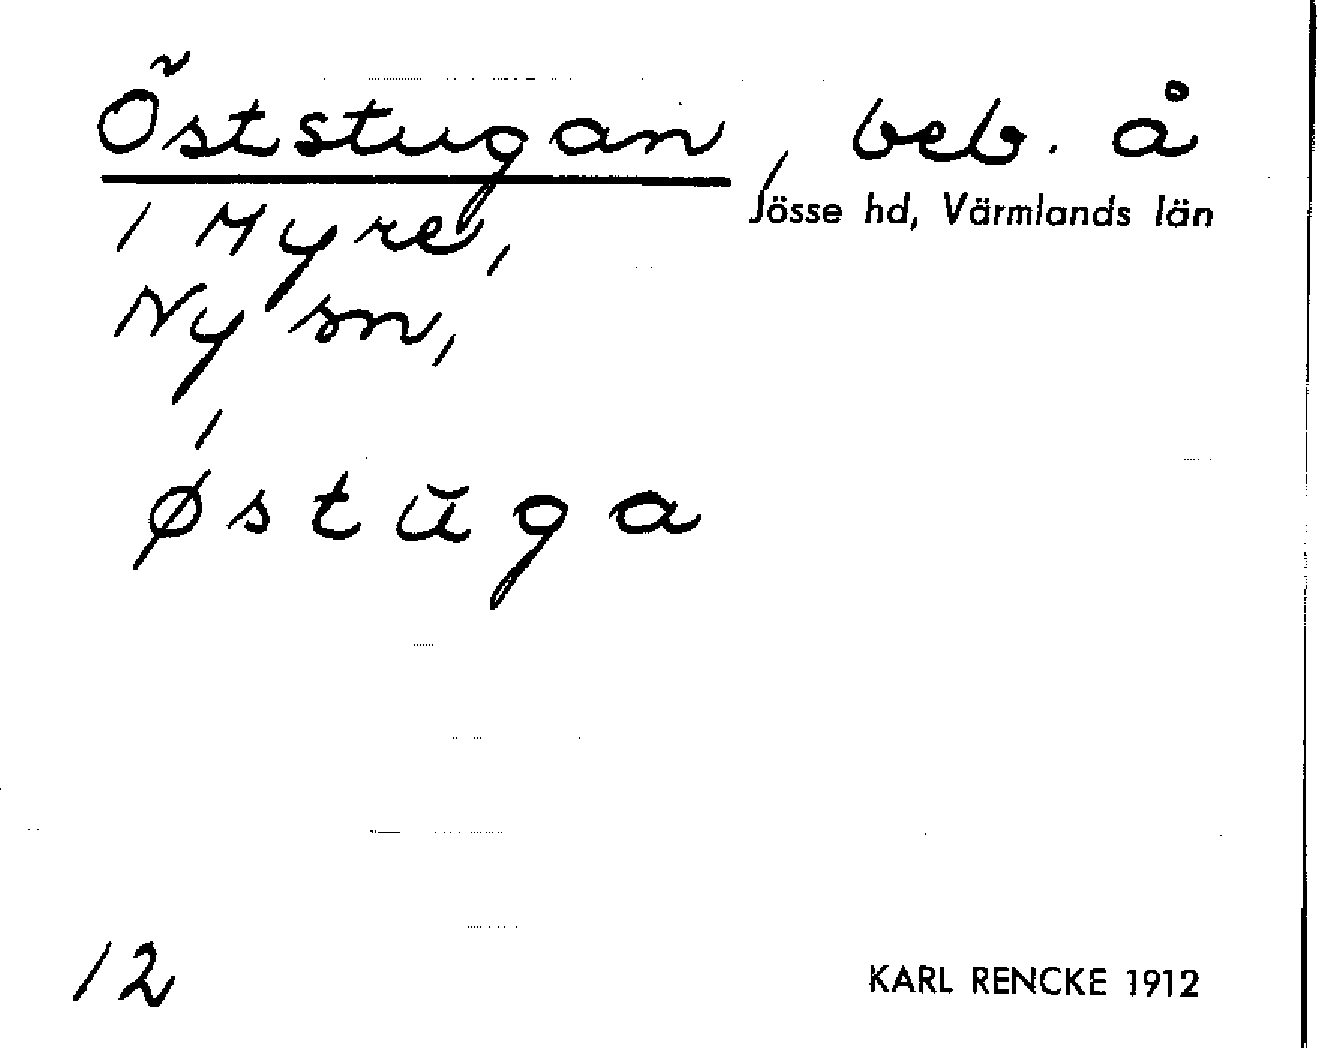 Öststugan, beb. å
Jösse hd, Värmlands län
1 Myre,
Ny sn,
ˈøstŭga
12
KARL RENCKE 1912